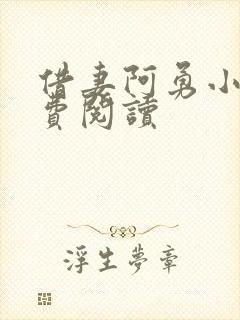 借妻阿勇小
費閱讀
浮生夢章